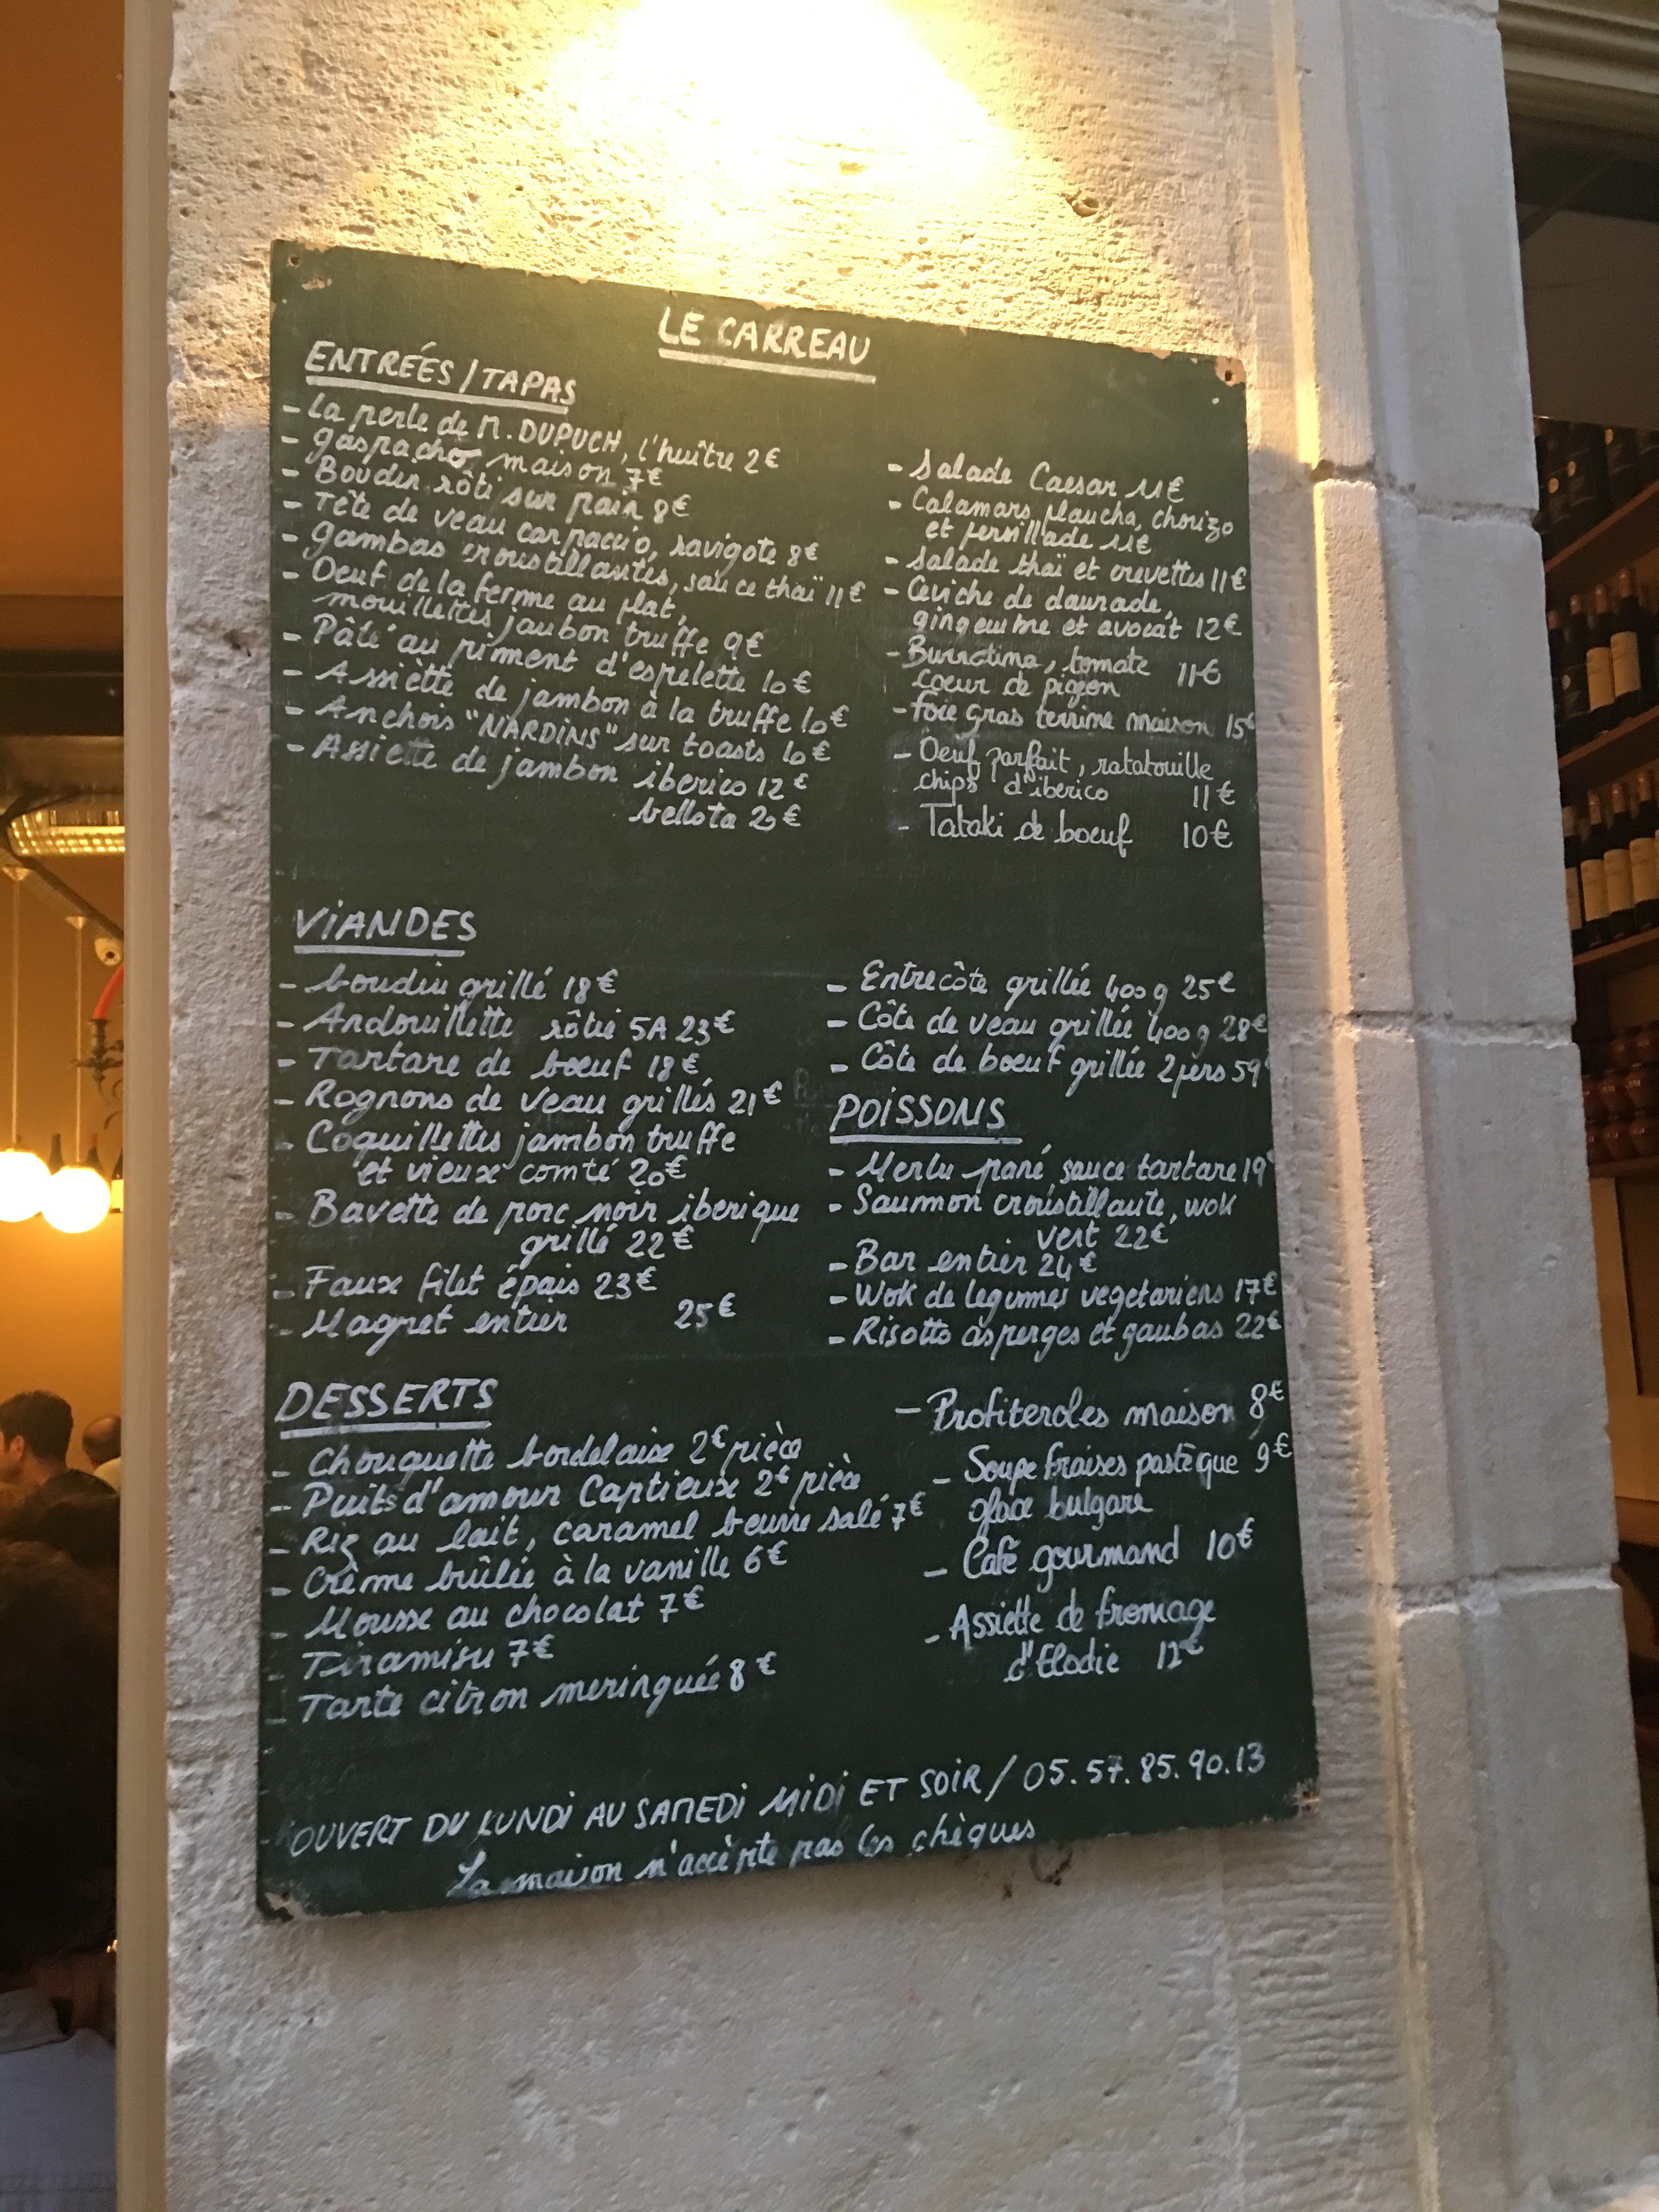 LE CARREAU
ENTRÉES / TAPAS
- La perle de M. DUPUCH, l'huître 2€
- gaspacho maison 7€
- Boudin rôti sur pain 8€
- Tête de veau carpaccio, ravigote 8€
- gambas croustillantes, sauce thaï 11€
- Oeuf de la ferme au plat,
mouillettes jaubon truffe 9€
- Pâté au piment d'espelette 10€
- Assiette de jambon à la truffe 10€
- Anchois "NARDINS" sur toasts 10€
- Assiette de jambon iberico 12€
bellota 20€
- Salade Caesar 11€
- Calamars plancha, chorizo
et persillade 11€
- Salade thaï et crevettes 11€
- Ceviche de daurade,
gingembre et avocat 12€
- Burratina, tomate 11€
coeur de pigeon
- foie gras terrine maison 15€
- Oeuf parfait, ratatouille
chips d'iberico 11€
- Tataki de boeuf 10€
VIANDES
- boudin grillé 18€
- Andouillette rôtie 5A 23€
- Tartare de boeuf 18€
- Rognons de veau grillés 21€
- Coquillettes jambon truffe
et vieux comté 20€
- Bavette de porc noir iberique
grillé 22€
- Faux filet épais 23€
- Magret entier 25€
- Entrecôte grillée 400g 25€
- Côte de veau grillée 400g 28€
- Côte de boeuf grillée 2pers 59€
POISSONS
- Merlu pané, sauce tartare 19€
- Saumon croustillante, wok
vert 22€
- Bar entier 24€
- Wok de legumes vegetariens 17€
- Risotto asperges et gambas 22€
DESSERTS
- Chouquette bordelaise 2€ pièce
- Puits d'amour Captieux 2€ pièce
- Riz au lait, caramel beurre salé 7€
- Crème brûlée à la vanille 6€
- Mousse au chocolat 7€
- Tiramisu 7€
- Tarte citron meringuée 8€
- Profiteroles maison 8€
- Soupe fraises pastèque 9€
glace bulgare
- Café gourmand 10€
- Assiette de fromage
d'Elodie 12€
OUVERT DU LUNDI AU SAMEDI MIDI ET SOIR / 05.57.85.90.13
La maison n'accèpte pas les chèques